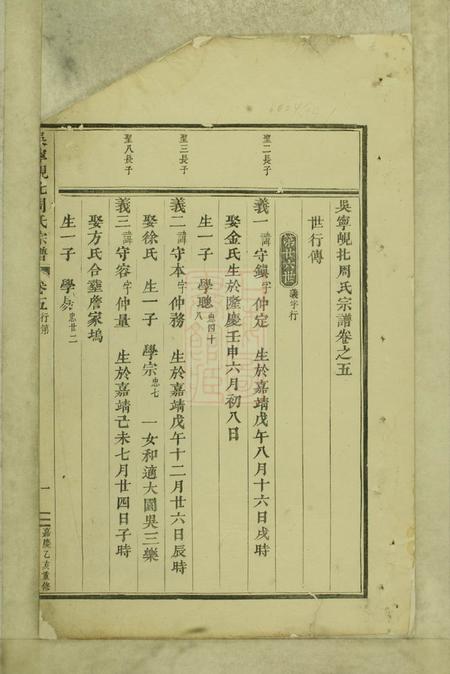 吳寧峴北周氏宗譜卷之五
世行傳
義字行
聖二長子
義一諱守鎮字仲定 生於嘉靖戊午八月十六日戌時
娶金氏生於隆慶壬申六月初八日
生一子 學聰忠四十八
聖三長子
義二諱守本字仲務 生於嘉靖戊午十二月廿六日辰時
娶徐氏 生一子 學宗忠七 一女和適大園吳三樂
聖八長子
義三諱守容字仲量 生於嘉靖己未七月廿四日子時
娶方氏合葬詹家塢
生一子 學 忠廿二
吳寧峴北周氏宗譜 卷五行第 一 嘉慶乙亥重修